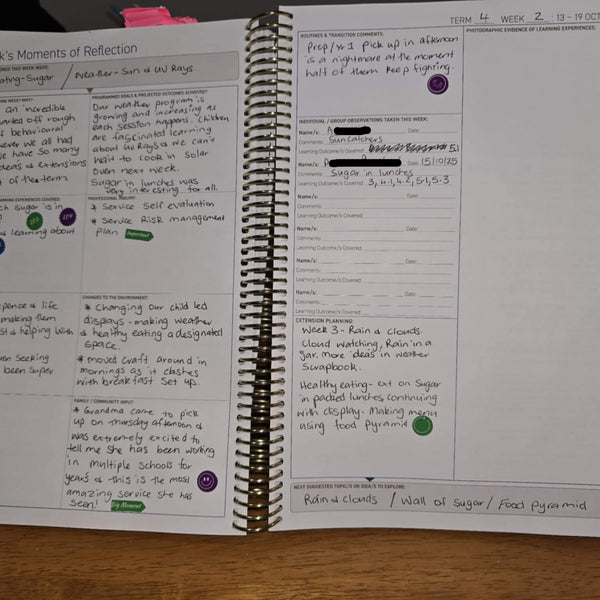 k's Moments of Reflection
ORED THIS WEEK WERE:
ating-Sugar / Weather - Sun & UV Rays
NG WEEK? WHY?
an incredible
arted off rough
f behavioural
ever we all had
e have so many
deas & extensions
t of the term.
PROGRAMMED GOALS & PROJECTED OUTCOMES ACHIEVED?
Our weather program is
growing and increasing as
each session happens. Children
are fascinated learning
about UV Rays & we can't
wait to cook in Solar
Oven next week.
Sugar in lunches was
very interesting for all.
RNING EXPERIENCES COVERED
ch sugar is in
d learning about
PROFESSIONAL INQUIRY:
* Service Self evaluation
* Service Risk management
plan Important
pence & life
making them
st & helping with
en seeking
been super
CHANGES TO THE ENVIRONMENT:
* Changing our child led
displays - making weather
& healthy eating a designated
space.
* moved craft around in
mornings as it clashes
with breakfast set up.
FAMILY / COMMUNITY INPUT:
* Grandma came to pick
up on Thursday afternoon &
was extremely excited to
tell me she has been working
in multiple schools for
years & this is the most
amazing service she has
seen! Big Moment
TERM 4 WEEK 2 : 13 - 19 OCT
ROUTINES & TRANSITION COMMENTS:
Prep/Yr 1 pick up in afternoon
is a nightmare at the moment
half of them keep fighting.
PHOTOGRAPHIC EVIDENCE OF LEARNING EXPERIENCES:
INDIVIDUAL / GROUP OBSERVATIONS TAKEN THIS WEEK:
Name/s: A Date:
Comments: Suncatchers
Learning Outcome/s Covered: 5.1
Name/s: Date: 15/10/25
Comments: Sugar in lunches
Learning Outcome/s Covered: 3, 4.1, 4.2, 5.1, 5.3
Name/s: Date:
Comments:
Learning Outcome/s Covered:
Name/s: Date:
Comments:
Learning Outcome/s Covered:
Name/s: Date:
Comments:
Learning Outcome/s Covered:
EXTENSION PLANNING:
Week 3 - Rain & clouds.
Cloud watching, Rain in a
jar. more ideas in weather
Scrapbook.
Healthy eating - ext on Sugar
in packed lunches, continuing
with display. Making menu
using food pyramid
NEXT SUGGESTED TOPIC/S OR IDEA/S TO EXPLORE:
Rain & Clouds / Wall of Sugar / Food pyramid